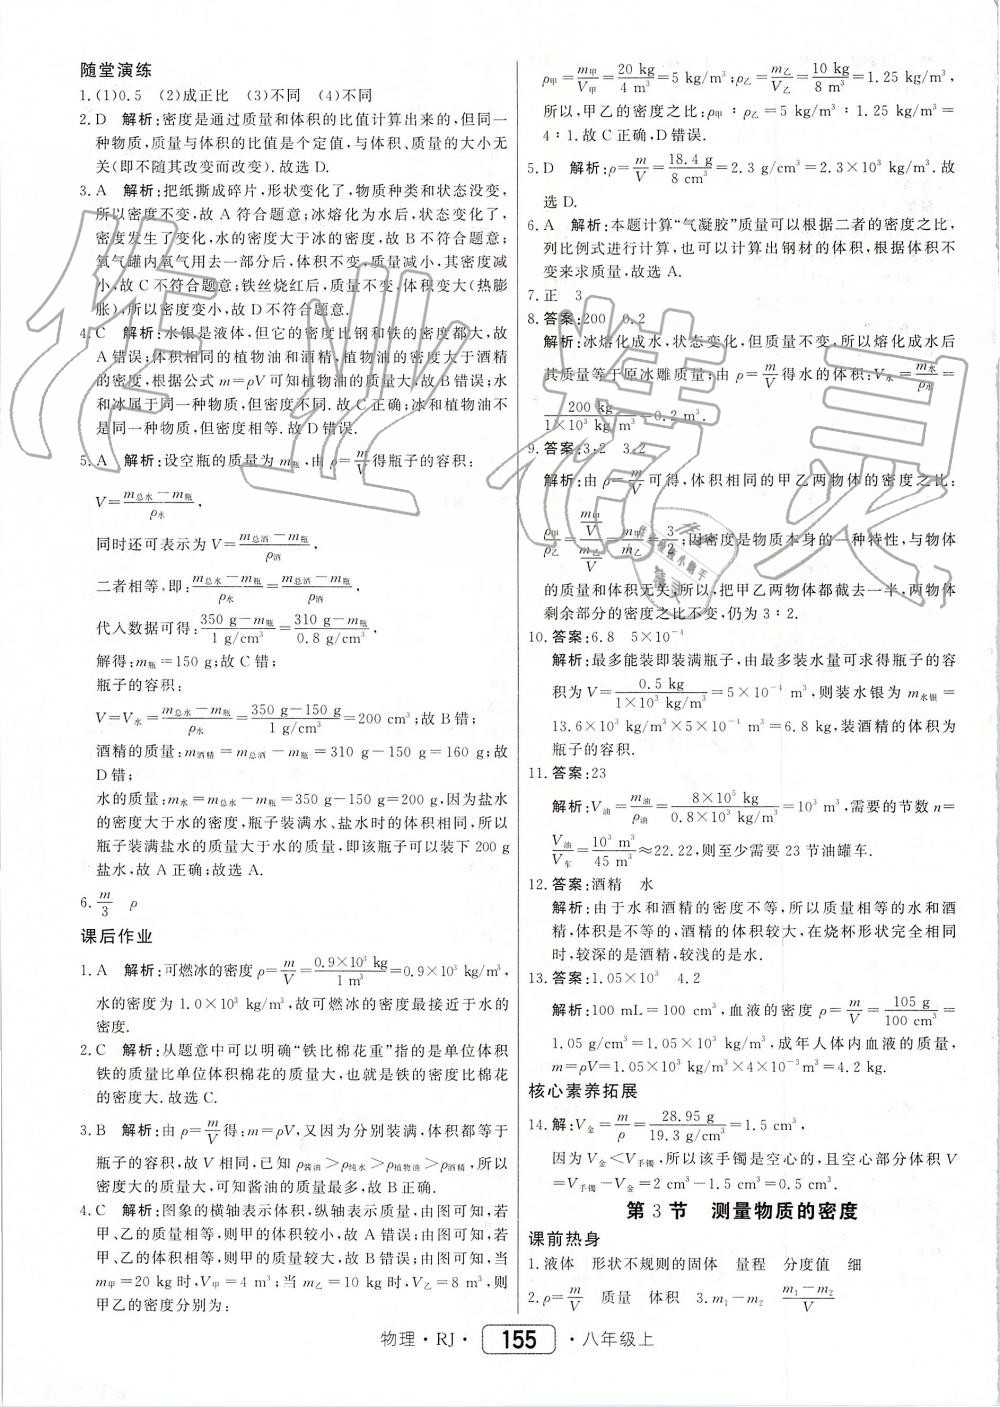 随堂演练
1.(1)0.5 (2)成正比 (3)不同 (4)不同
2.D 解析:密度是通过质量和体积的比值计算出来的,但同一
种物质,质量与体积的比值是个定值,与体积、质量的大小无
关(即不随其改变而改变).故选 D.
3.A 解析:把纸撕成碎片,形状变化了,物质种类和状态没变,
所以密度不变,故 A 符合题意;冰熔化为水后,状态变化了,
密度发生了变化,水的密度大于冰的密度,故 B 不符合题意;
氧气罐内氧气用去一部分后,体积不变,质量减小,其密度减
小,故 C 不符合题意;铁丝烧红后,质量不变,体积变大(热膨
胀),所以密度变小,故 D 不符合题意.
4.C 解析:水银是液体,但它的密度比钢和铁的密度都大,故
A 错误;体积相同的植物油和酒精,植物油的密度大于酒精
的密度,根据公式 m=ρV 可知植物油的质量大,故 B 错误;水
和冰属于同一种物质,但密度不同.故 C 正确;冰和植物油不
是同一种物质,但密度相等.故 D 错误.
5.A 解析:设空瓶的质量为 m瓶,由 ρ=m/V 得瓶子的容积:
V=(m总水−m瓶)/ρ水,
同时还可表示为 V=(m总酒−m瓶)/ρ酒,
二者相等,即:(m总水−m瓶)/ρ水=(m总酒−m瓶)/ρ酒,
代入数据可得:(350 g−m瓶)/(1 g/cm³)=(310 g−m瓶)/(0.8 g/cm³),
解得:m瓶=150 g;故 C 错;
瓶子的容积:
V=V水=(m总水−m瓶)/ρ水=(350 g−150 g)/(1 g/cm³)=200 cm³;故 B 错;
酒精的质量:m酒精=m总酒−m瓶=310 g−150 g=160 g;故
D 错;
水的质量:m水=m总水−m瓶=350 g−150 g=200 g,因为盐水
的密度大于水的密度,瓶子装满水、盐水时的体积相同,所以
瓶子装满盐水的质量大于水的质量,即该瓶子可以装下 200 g
盐水,故 A 正确;故选 A.
6.m/3 ρ
课后作业
1.A 解析:可燃冰的密度 ρ=m/V=(0.9×10³ kg)/(1 m³)=0.9×10³ kg/m³,
水的密度为 1.0×10³ kg/m³,故可燃冰的密度最接近于水的
密度.
2.C 解析:从题意中可以明确“铁比棉花重”指的是单位体积
铁的质量比单位体积棉花的质量大,也就是铁的密度比棉花
的密度大.故选 C.
3.B 解析:由 ρ=m/V 得:m=ρV,又因为分别装满,体积都等于
瓶子的容积,故 V 相同,已知 ρ酱油>ρ纯水>ρ植物油>ρ酒精,所以
密度大的质量大,可知酱油的质量最多,故 B 正确.
4.C 解析:图象的横轴表示体积,纵轴表示质量,由图可知,若
甲、乙的质量相等,则甲的体积较小,故 A 错误;由图可知,若
甲、乙的体积相等,则甲的质量较大,故 B 错误;由图可知,当
m甲=20 kg 时,V甲=4 m³;当 m乙=10 kg时,V乙=8 m³,则
甲乙的密度分别为:
ρ甲=m甲/V甲=20 kg/4 m³=5 kg/m³;ρ乙=m乙/V乙=10 kg/8 m³=1.25 kg/m³,
所以,甲乙的密度之比:ρ甲∶ρ乙=5 kg/m³∶1.25 kg/m³=
4∶1.故 C 正确,D 错误.
5.D 解析:ρ=m/V=18.4 g/8 cm³=2.3 g/cm³=2.3×10³ kg/m³.故
选 D.
6.A 解析:本题计算“气凝胶”质量可以根据二者的密度之比,
列比例式进行计算,也可以计算出钢材的体积,根据体积不
变来求质量,故选 A.
7.正 3
8.答案:200 0.2
解析:冰熔化成水,状态变化,但质量不变,所以熔化成水后
其质量等于原冰雕质量;由 ρ=m/V 得水的体积:V水=m水/ρ水=
200 kg/(1×10³ kg/m³)=0.2 m³.
9.答案:3∶2 3∶2
解析:由 ρ=m/V 可得,体积相同的甲乙两物体的密度之比:
ρ甲/ρ乙=(m甲/V)/(m乙/V)=m甲/m乙=3/2;因密度是物质本身的一种特性,与物体
的质量和体积无关,所以,把甲乙两物体都截去一半,两物体
剩余部分的密度之比不变,仍为 3∶2.
10.答案:6.8 5×10⁻⁴
解析:最多能装即装满瓶子,由最多装水量可求得瓶子的容
积为 V=0.5 kg/(1×10³ kg/m³)=5×10⁻⁴ m³,则装水银为 m水银=
13.6×10³ kg/m³×5×10⁻⁴ m³=6.8 kg,装酒精的体积为
瓶子的容积.
11.答案:23
解析:V油=m油/ρ油=(8×10⁵ kg)/(0.8×10³ kg/m³)=10³ m³,需要的节数 n=
V油/V车=10³ m³/45 m³≈22.22,则至少需要 23 节油罐车.
12.答案:酒精 水
解析:由于水和酒精的密度不等,所以质量相等的水和酒
精,体积是不等的,酒精的体积较大,在烧杯形状完全相同
时,较深的是酒精,较浅的是水.
13.答案:1.05×10³ 4.2
解析:100 mL=100 cm³,血液的密度 ρ=m/V=105 g/100 cm³=
1.05 g/cm³=1.05×10³ kg/m³,成年人体内血液的质量,
m=ρV=1.05×10³ kg/m³×4×10⁻³m³=4.2 kg.
核心素养拓展
14.解:V金=m/ρ=28.95 g/(19.3 g/cm³)=1.5 cm³,
因为 V金<V手镯,所以该手镯是空心的,且空心部分体积 V
=V手镯−V金=2 cm³−1.5 cm³=0.5 cm³.
第 3 节 测量物质的密度
课前热身
1.液体 形状不规则的固体 量程 分度值 细
2.ρ=m/V 质量 体积 3.m₁−m₂ (m₁−m₂)/V
物理·RJ· 155 ·八年级上
作业精灵